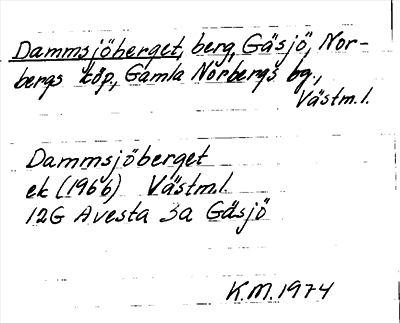 Dammsjöberget, berg, Gäsjö, Nor-
bergs köp., Gamla Norbergs bg.,
Västm.l.
Dammsjöberget
ek (1966) Västm.l.
12G Avesta 3a Gäsjö
K.M. 1974